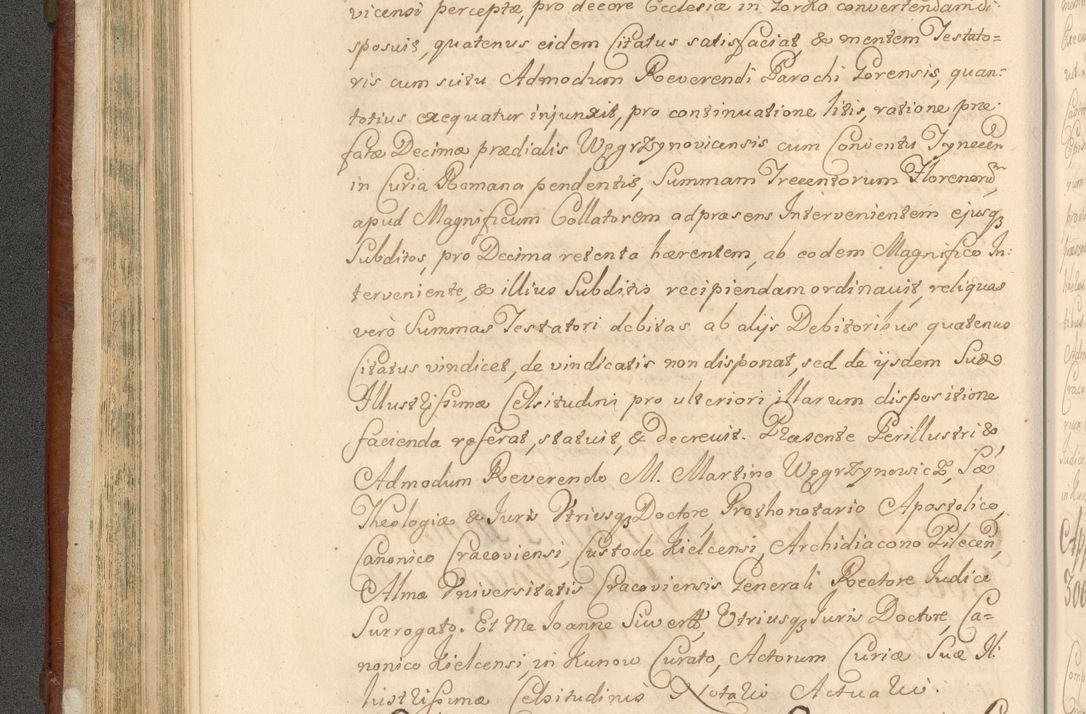 vicensi perceptæ, pro decore Ecclesiæ in Zorko convertendam di-
sposuit, quatenus eidem Citatus satisfaciat & mentem Testato=
ris cum scitu Admodum Reverendi Parochi Lorensis, quan-
totius exequatur injunxit, pro continuatione litis, ratione præ-
fatæ Decimæ prædialis Węgrzynovicensis cum Conventu Tynecen
in Curia Romana pendentis, Summam Trecentorum Florenorũ,
apud Magnificum Collatorem ad præsens Intervenientem ejusq3
Subditos, pro Decima retenta hærentem, ab eodem Magnifico In:
terveniente, & illius Subditis recipiendam ordinavit, reliquas
verò Summas Testatori debitas ab alijs Debitoribus quatenus
Citatus vindicet, de vindicatis non disponat, sed de ijsdem Suæ
Illustrissimæ Celsitudini pro ulteriori illarum dispositione
facienda referat, statuit, & decrevit. Præsente Perillustri &
Admodum Reverendo M. Martino Węgrzynowicz, Sæ
Theologiæ & Juris Utriusq3 Doctore, Prothonotario Apostolico,
Canonico Cracoviensi, Custode Kielcensi, Archidiacono Pilecen,
Almæ Universitatis Cracoviensis Generali Rectore Judice
Surrogato. Et Me Joanne Suwertt, Utriusq3 Juris Doctore, Ca=
nonico Kielcensi, in Kunow Curato, Actorum Curiæ Suæ Il
lustrissimæ Celsitudinis Notario Actuario.